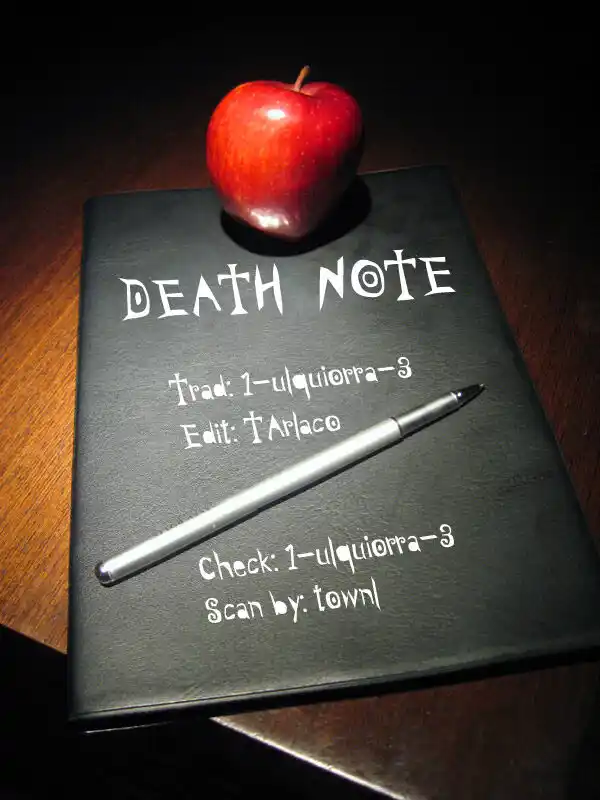 DEATH NOTE
Trad: 1-ulquiorra-3
Edit: TArlaco
Check: 1-ulquiorra-3
Scan by: townl